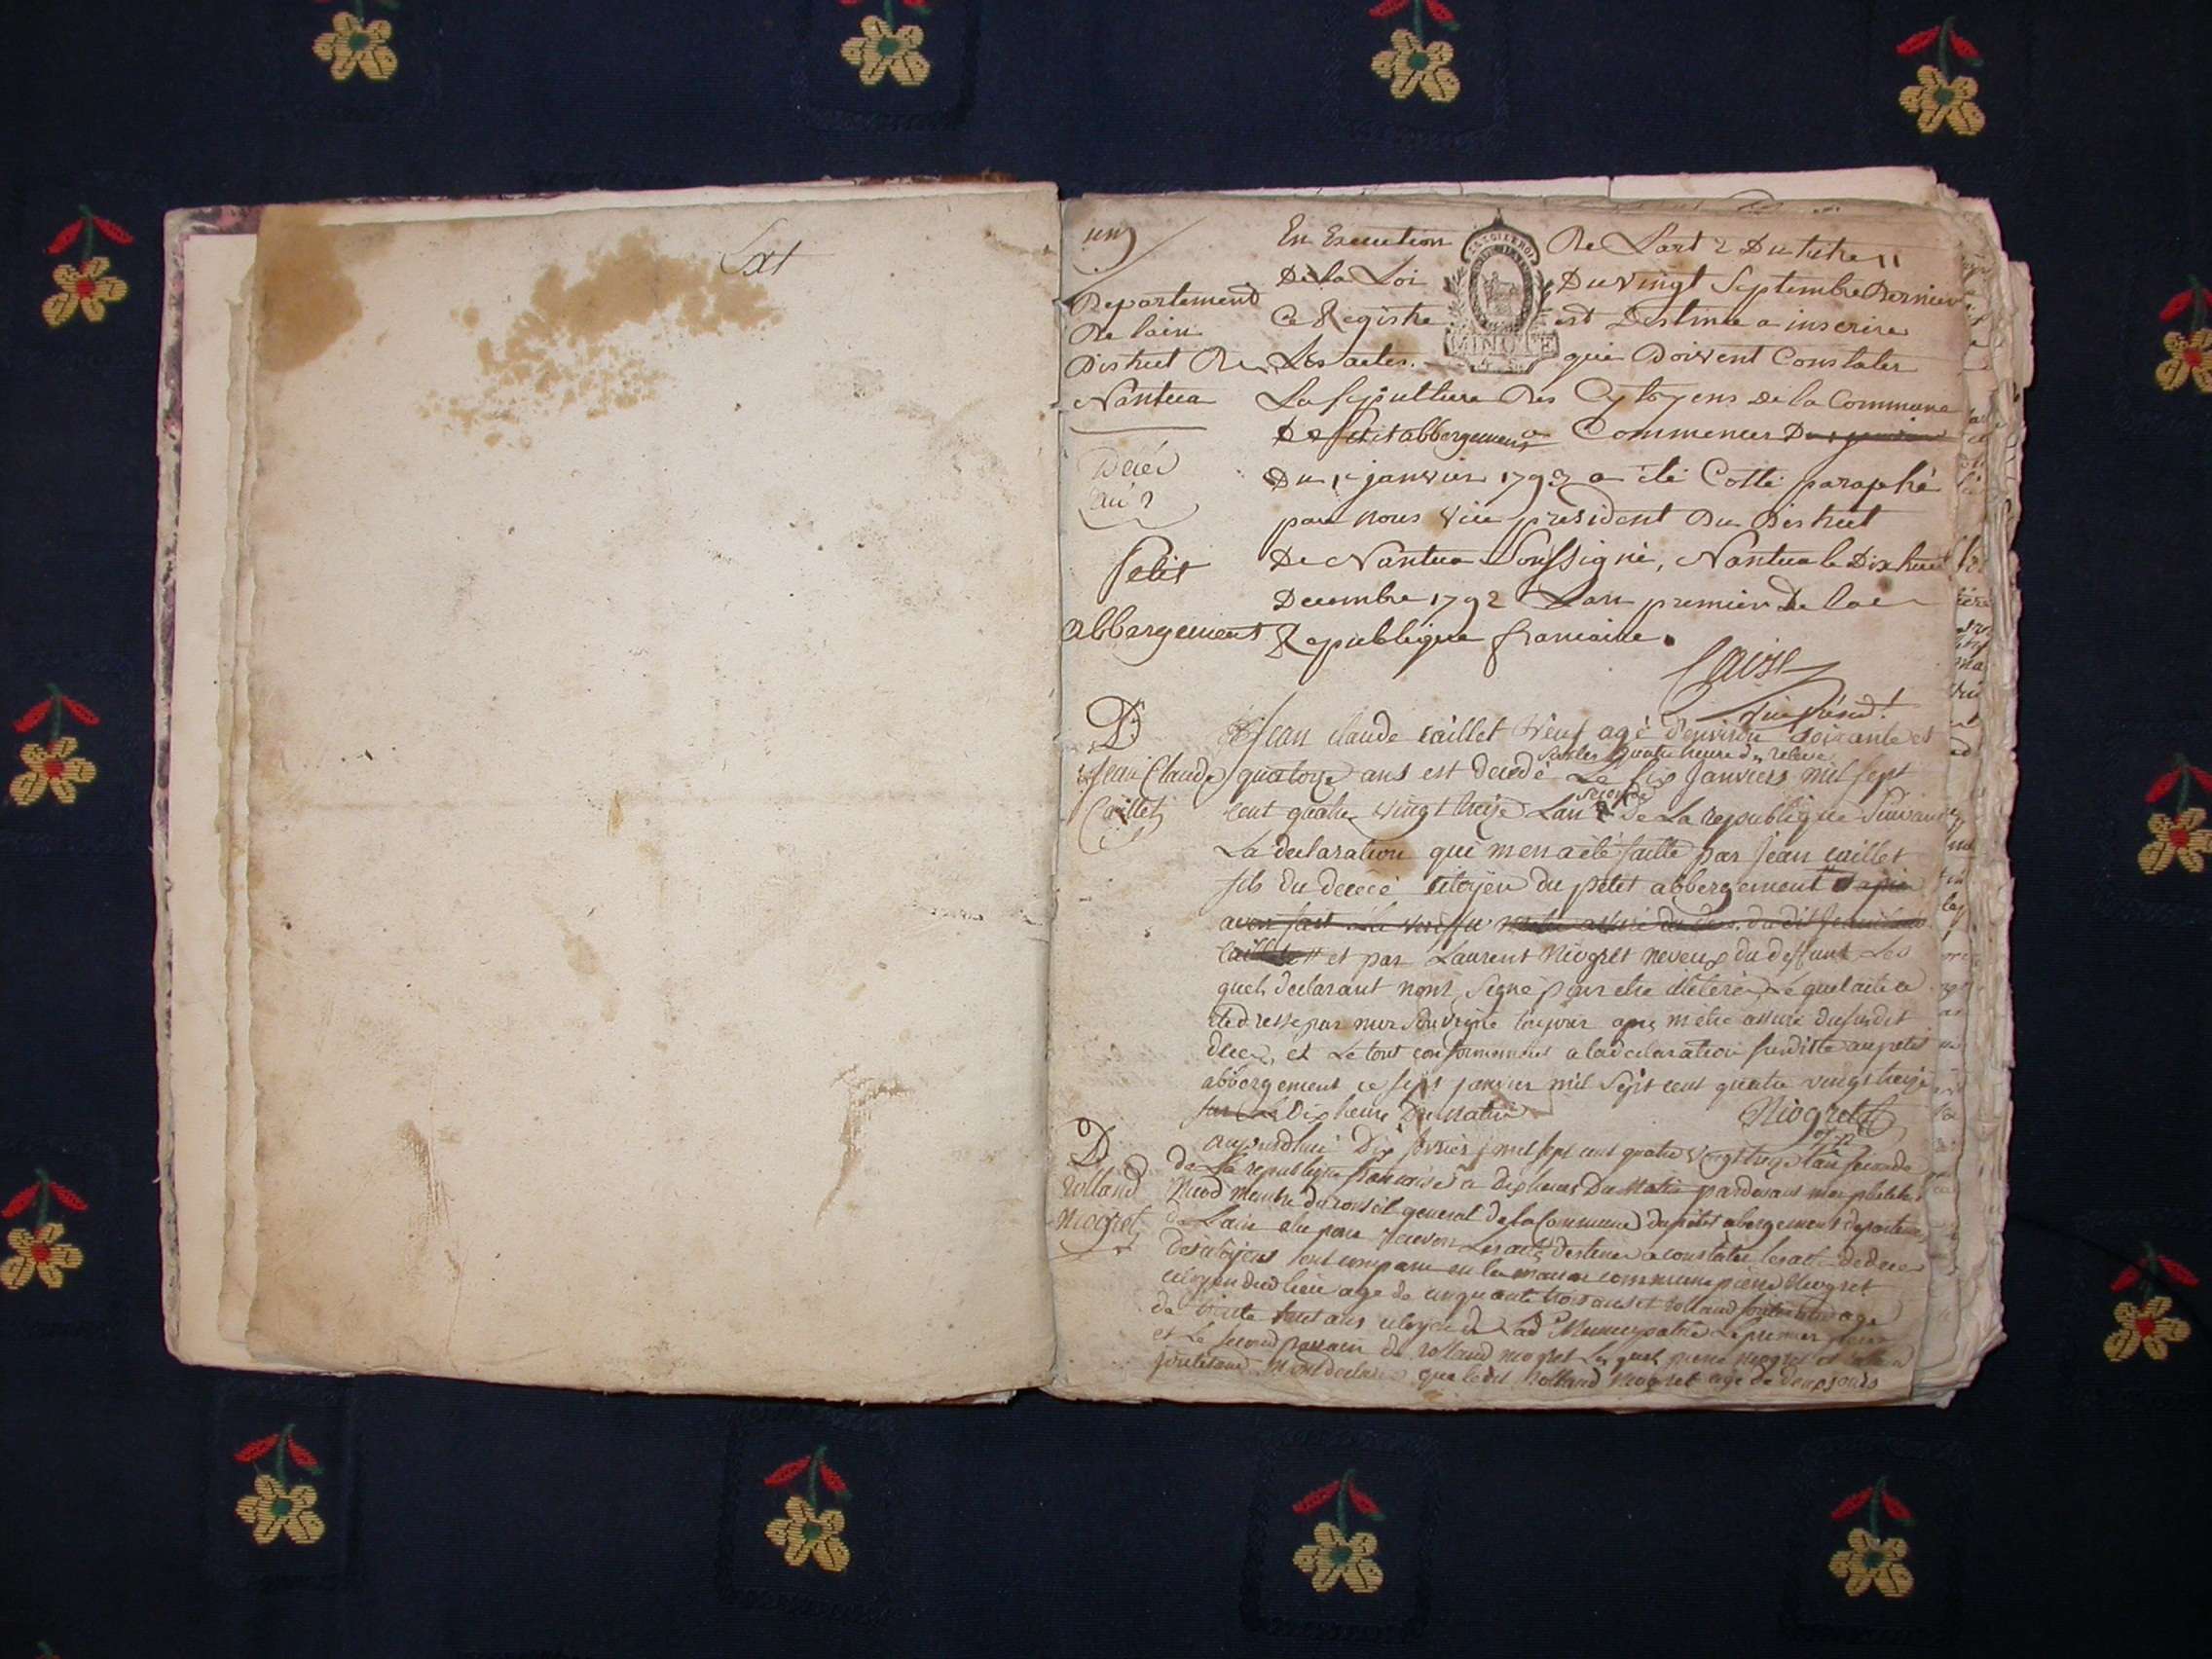 un
En Execution De Lart 2 Du titre 11
De la Loi Du vingt Septembre Dernier
Ce Registre est Destiné a inscrire
Les actes. qui Doivent Constater
La sepulture Des Cytoyens De la Commune
De petit abbergement a Commencer
Du 1er janvier 1793 a été Cotté paraphé
par nous vice président Du District
De Nantua Soussigné, Nantua le Dix huit
Decembre 1792 Lan premier De la
Republique francaise.
vice présid.t
Departement
De lain
District De
Nantua
MINUTE
Petit
abbergement
D
Jean Claude
Caillet
Jean Claude caillet veuf agé d'environ soixante et
sur les quatre heure du releve
quatorze ans est decedé Le six Janviers mil sept
seconde
cent quatre vingt treize Lan 2 de La republique Suivant
La declaration qui men a été faitte par Jean caillet
fils du decedé citoyen du petit abbergement et apré
avoir fait
et par Laurent Niogret neveux du deffunt Les
quels declarant nont signé pour etre illeteré, Lequel acte a
eté dressé par moi Soussigné apres métre assuré du susdit
decé, et Le tout conformement a la declaration susditte au petit
abbergement ce sept janvier mil sept cent quatre vingt treize
sur les Dix heure Du Matin
Niogret
D
Rolland
Niogret
aujourdhui Dix fevrier mil sept cent quatre vingt treize Lan seconde
de La republique francaise a dix heures Du Matin pardevant moi
Nicod membre du conseil general de la Commune du petit abergement departement
de Lain elu pour recevoir Les actes destines a constater les de deces
des citoyens sont comparu en la maison commune pierre Niogret
citoyen dud lieu age de cinquante trois ans et rolland age
de trente huit ans citoyen de Lad Municipalité Le premier
et Le second parrain de rolland niogret Lesquels pierre niogret et
mont declaré que ledit Rolland Niogret age de deux jours